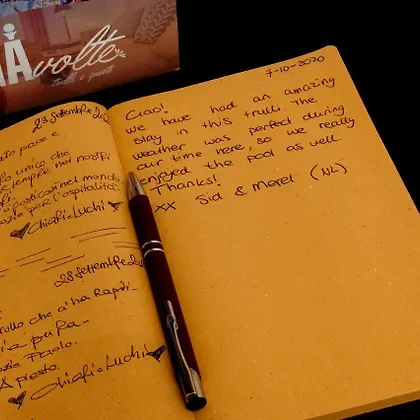 Avolte
23 Settembre 2
pace e
unico che
sempre nei nostri
nel mondo
per l'ospitalità.
Chiafi e Luchi
28 settembre 20
che ci ha rapiti
Paolo.
A presto.
Chiafi e Luchi
7-10-2020
Ciao!
We have had an amazing
stay in this trulli. The
weather was perfect during
our time here, so we really
enjoyed the pool as well.
Thanks!
xx Sid & Merel (NL)